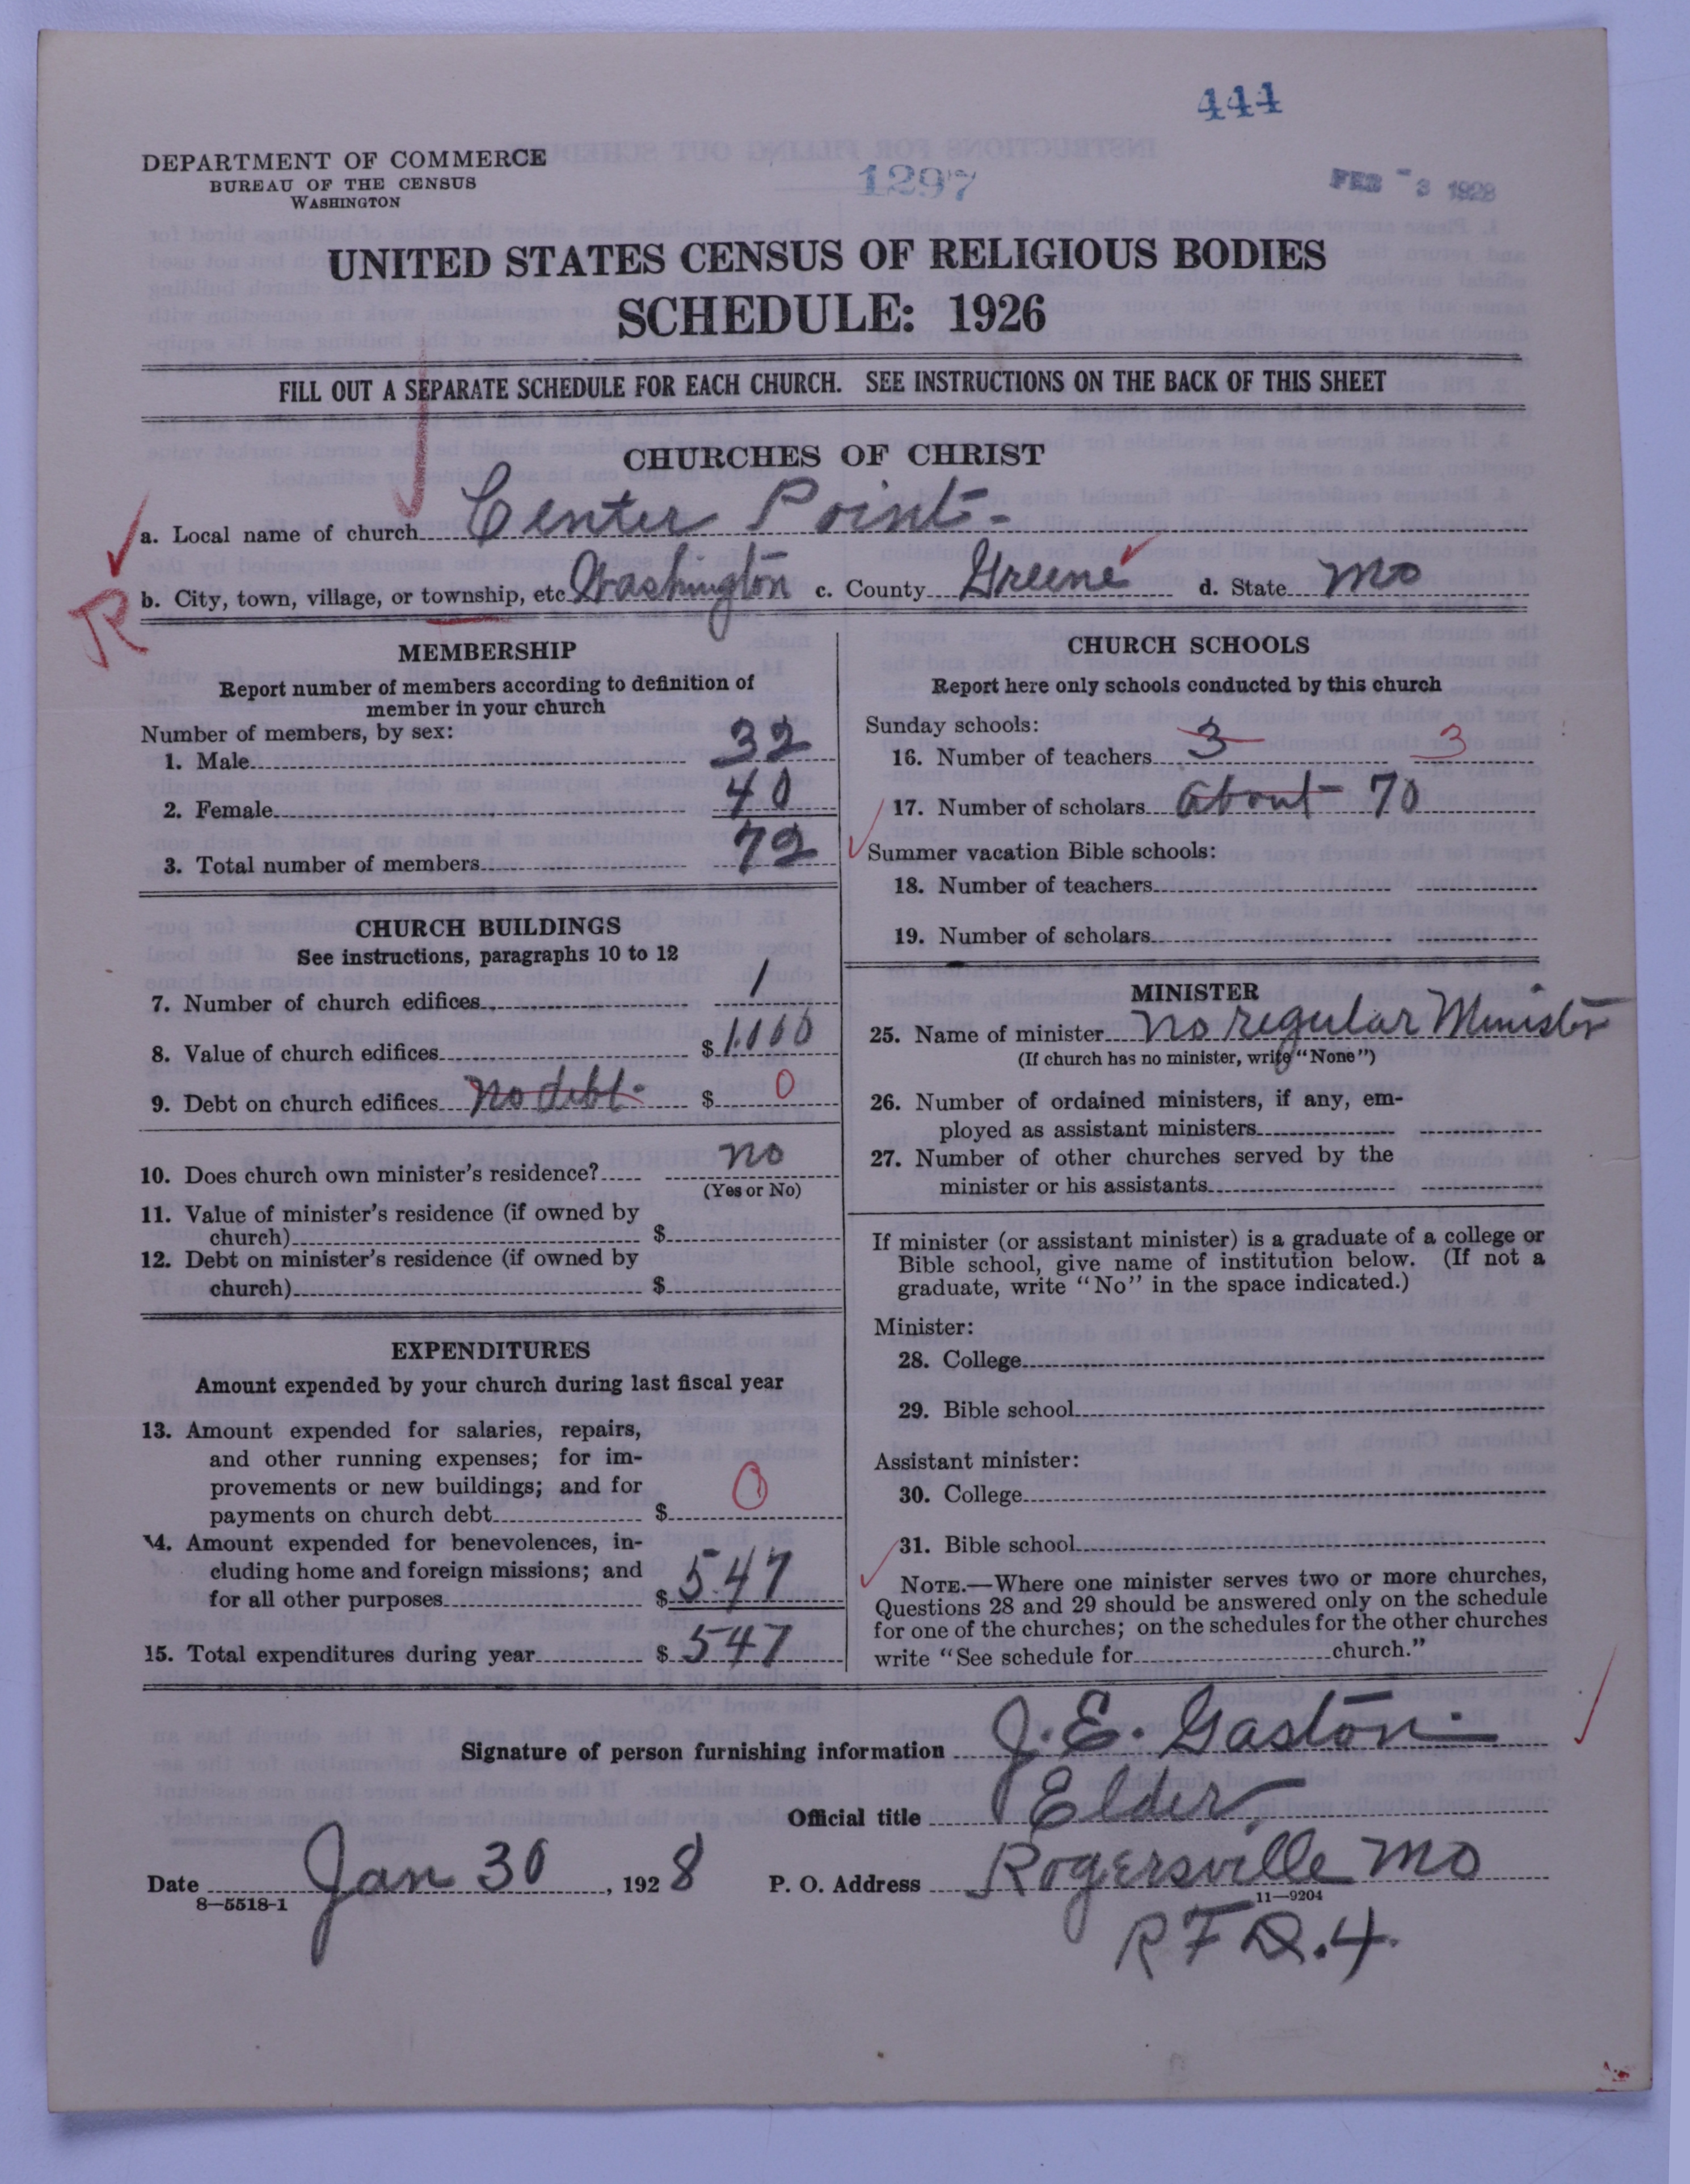 444
DEPARTMENT OF COMMERCE
BUREAU OF THE CENSUS
WASHINGTON
1297
FEB -3 1928
UNITED STATES CENSUS OF RELIGIOUS BODIES
SCHEDULE: 1926
FILL OUT A SEPARATE SCHEDULE FOR EACH CHURCH. SEE INSTRUCTIONS ON THE BACK OF THIS SHEET
CHURCHES OF CHRIST
a. Local name of church Center Point-
b. City, town, village, or township, etc Washington c. County Greene d. State Mo
R
MEMBERSHIP
Report number of members according to definition of
member in your church
Number of members, by sex:
1. Male 32
2. Female 40
3. Total number of members 72
CHURCH BUILDINGS
See instructions, paragraphs 10 to 12
7. Number of church edifices 1
8. Value of church edifices $ 1.000
9. Debt on church edifices no debt. $ 0
10. Does church own minister's residence? no
(Yes or No)
11. Value of minister's residence (if owned by
church) $
12. Debt on minister's residence (if owned by
church) $
EXPENDITURES
Amount expended by your church during last fiscal year
13. Amount expended for salaries, repairs,
and other running expenses; for im-
provements or new buildings; and for
payments on church debt $ 0
14. Amount expended for benevolences, in-
cluding home and foreign missions; and
for all other purposes $ 547
15. Total expenditures during year $ 547
CHURCH SCHOOLS
Report here only schools conducted by this church
Sunday schools:
16. Number of teachers 3 3
17. Number of scholars about 70
Summer vacation Bible schools:
18. Number of teachers
19. Number of scholars
MINISTER
25. Name of minister no regular Minister
(If church has no minister, write "None")
26. Number of ordained ministers, if any, em-
ployed as assistant ministers
27. Number of other churches served by the
minister or his assistants
If minister (or assistant minister) is a graduate of a college or
Bible school, give name of institution below. (If not a
graduate, write "No" in the space indicated.)
Minister:
28. College
29. Bible school
Assistant minister:
30. College
31. Bible school
NOTE.—Where one minister serves two or more churches,
Questions 28 and 29 should be answered only on the schedule
for one of the churches; on the schedules for the other churches
write "See schedule for church."
Signature of person furnishing information J. E. Gaston.
Official title Elder
Date Jan 30, 1928 P. O. Address Rogersville Mo
8—5518-1 11—9204
R F D. 4.